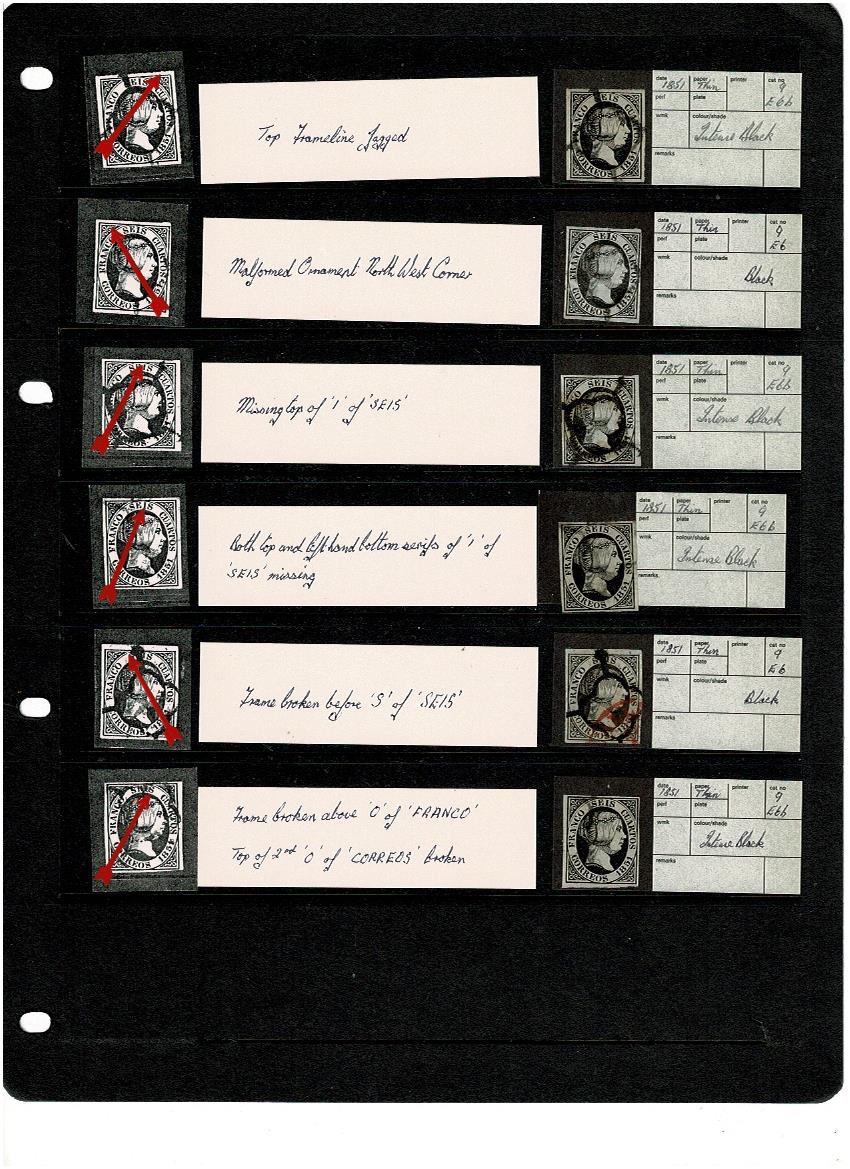 FRANCO SEIS CUARTOS
CORREOS 1851
Top Frameline Jagged
FRANCO SEIS CUARTOS
CORREOS 1851
date paper printer cat no
1851 Thin 9
perf plate E6b
wmk colour/shade
Intense Black
remarks
FRANCO SEIS CUARTOS
CORREOS
Malformed Ornament North West Corner
FRANCO SEIS CUARTOS
CORREOS 1851
date paper printer cat no
1851 Thin 9
perf plate E6
wmk colour/shade
Black
remarks
SEIS CUARTOS
Missing top of '1' of 'SEIS'
FRANCO SEIS CUARTOS
date paper printer cat no
1851 Thin 9
perf plate E6b
wmk colour/shade
Intense Black
remarks
FRANCO SEIS CUARTOS
CORREOS 1851
Both top and left hand bottom serifs of '1' of
'SEIS' missing
FRANCO SEIS CUARTOS
CORREOS 1851
date paper printer cat no
1851 Thin 9
perf plate E6b
wmk colour/shade
Intense Black
remarks
FRANCO SEIS CUARTOS
CORREOS
Frame broken before 'S' of 'SEIS'
FRANCO SEIS CUARTOS
CORREOS
date paper printer cat no
1851 Thin 9
perf plate E6
wmk colour/shade
Black
remarks
FRANCO SEIS CUARTOS
CORREOS 1851
Frame broken above 'O' of 'FRANCO'
Top of 2nd 'O' of 'CORREOS' broken
FRANCO SEIS CUARTOS
CORREOS 1851
date paper printer cat no
1851 Thin 9
perf plate E6b
wmk colour/shade
Intense Black
remarks